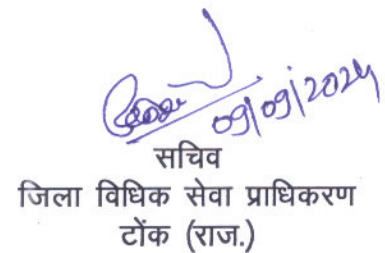 09/09/2024
सचिव
जिला विधिक सेवा प्राधिकरण
टोंक (राज.)